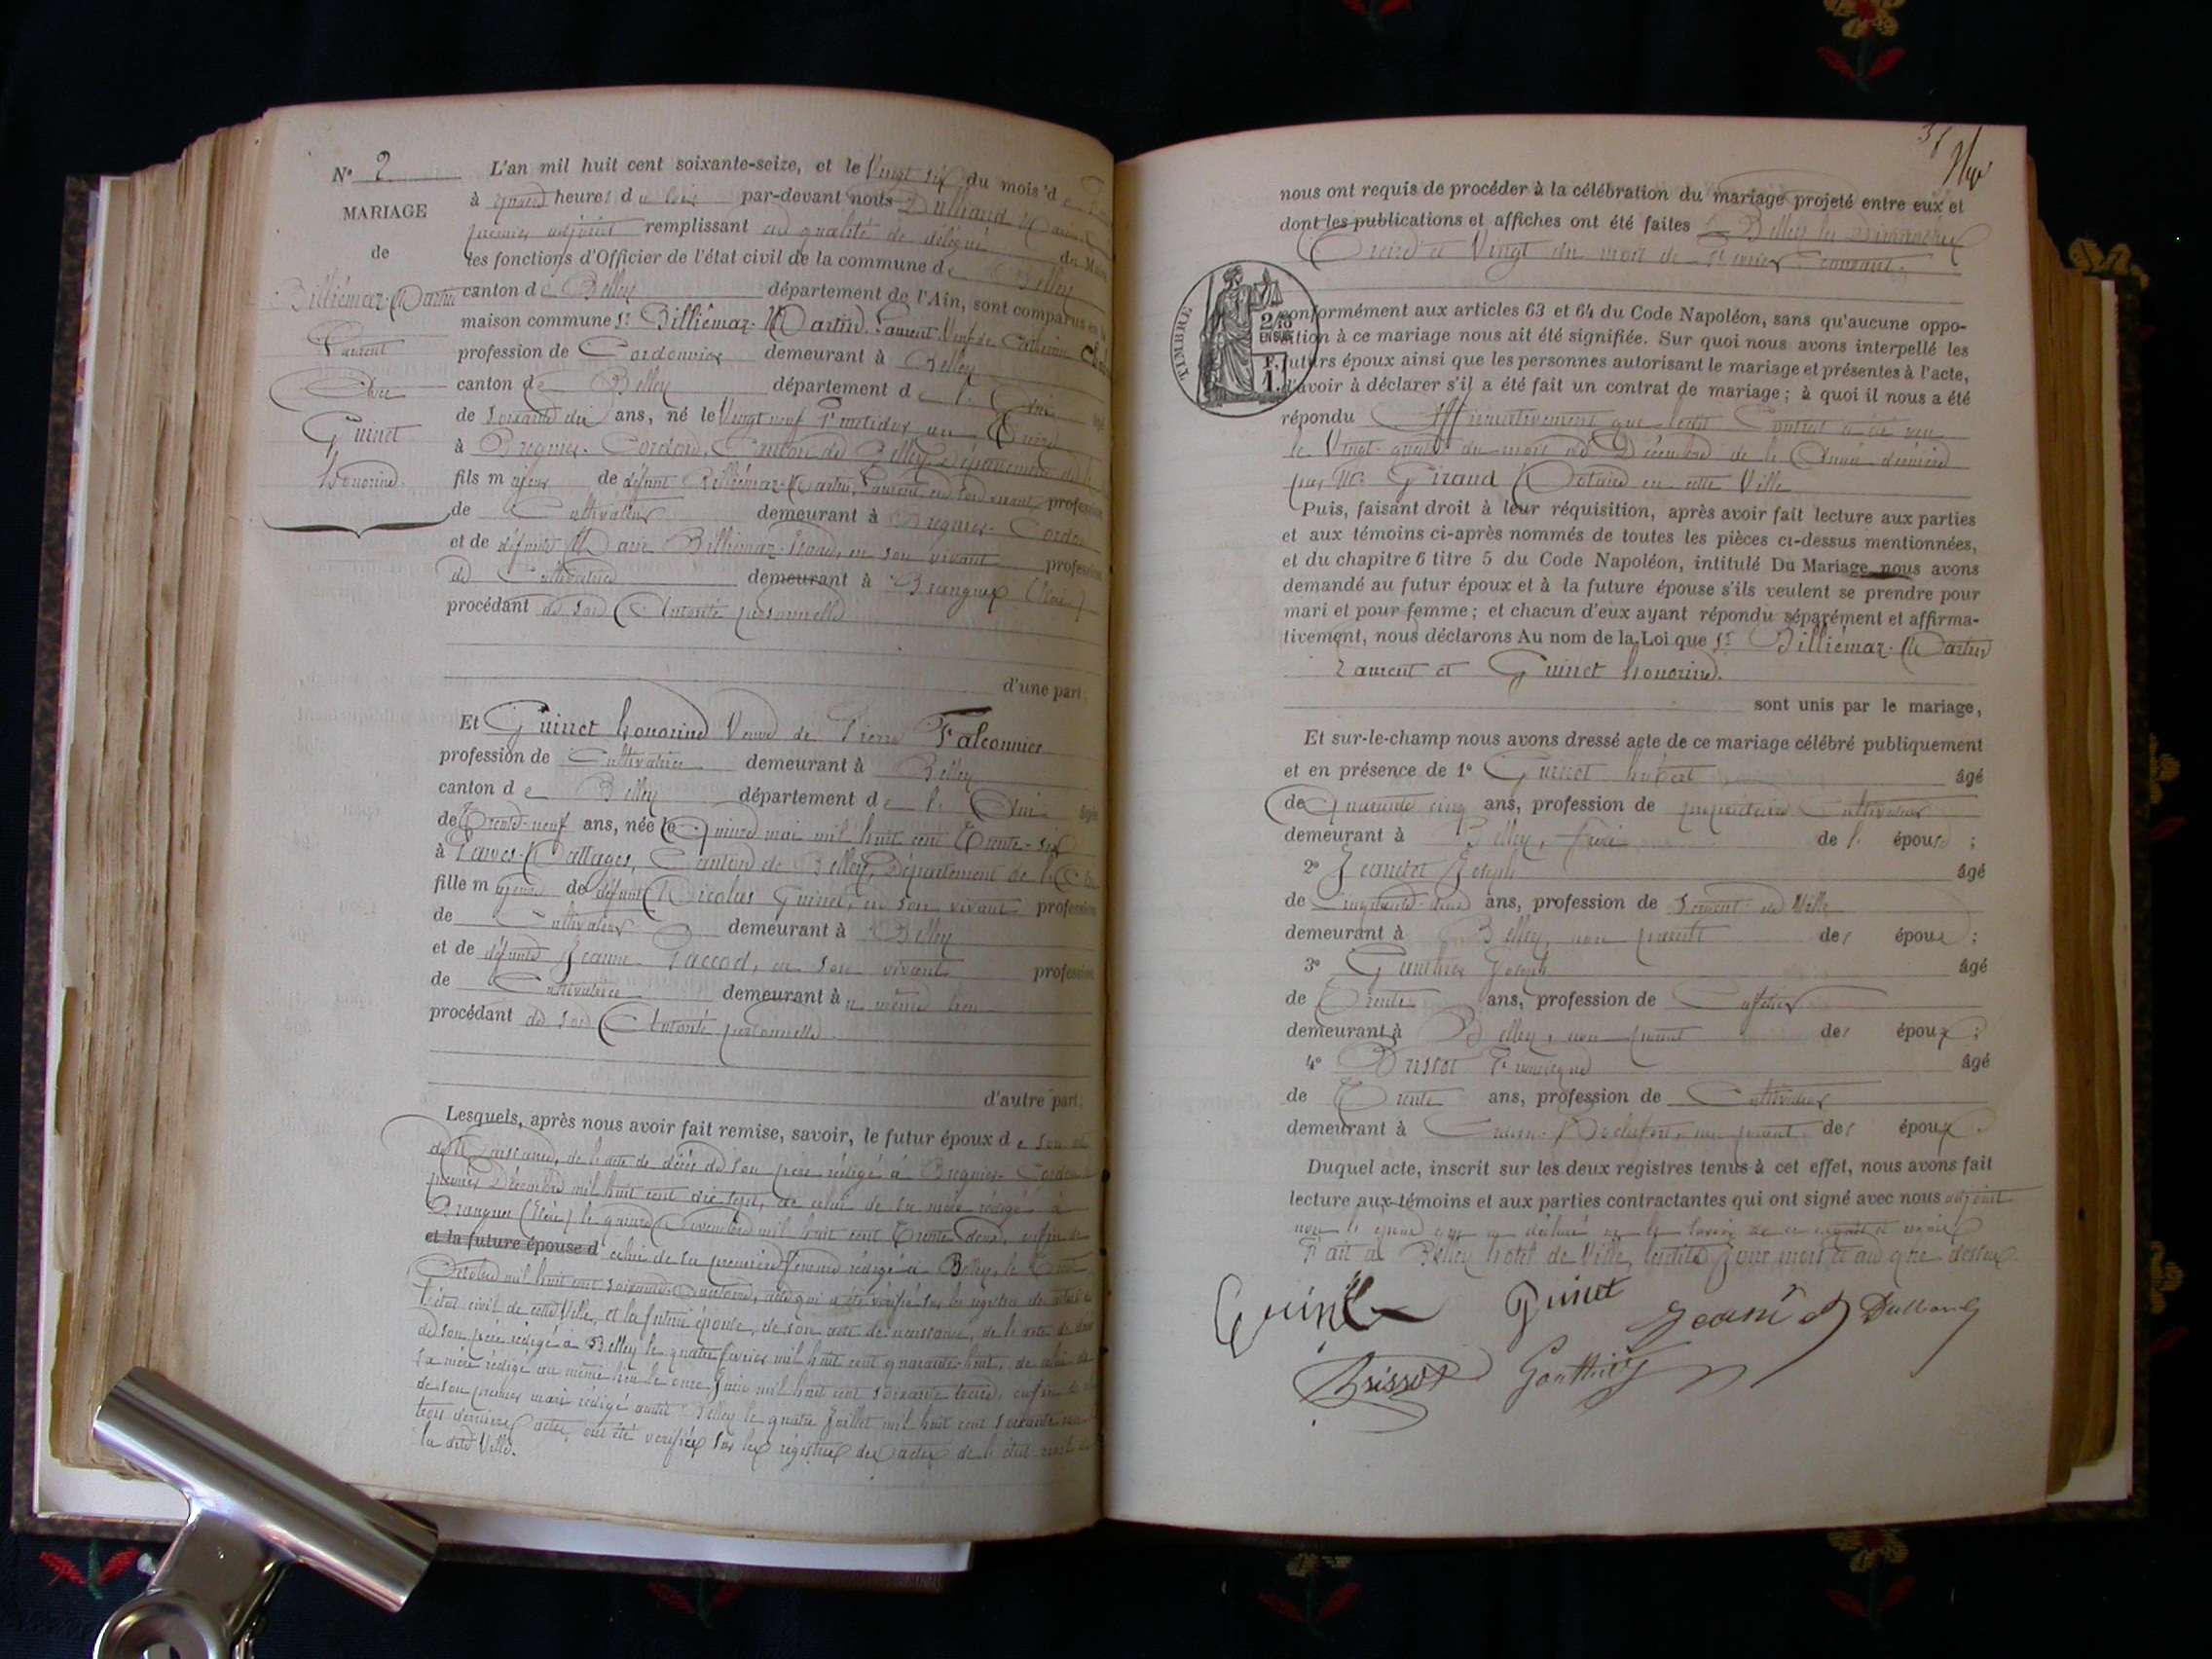 N° 2
MARIAGE
de
Billiémaz-Martin
Laurent
Avec
Guinet
Honorine.
L'an mil huit cent soixante-seize, et le Vingt six du mois d
à quatre heures du soir par-devant nous Dulliand
premier adjoint remplissant en qualité de délégué du Maire
les fonctions d'Officier de l'état civil de la commune de Belley
canton de Belley département de l'Ain, sont comparus en la
maison commune Sr Billiémaz-Martin Laurent Veuf de Catherine
profession de Cordonnier demeurant à Belley
canton de Belley département de l'Ain âgé
de soixante dix ans, né le Vingt neuf Thermidor an Treize
à Bregnier-Cordon, Canton de Belley Département de l'
fils majeur de défunt Billiémaz-Martin Laurent, en son vivant profession
de Cultivateur demeurant à Bregnier-Cordon
et de défunte Marie Billiémaz, en son vivant profession
de Cultivatrice demeurant à Brangues (Isère)
procédant de son Autorité personnelle
d'une part;
Et Guinet honorine Veuve de Pierre Falconnier
profession de Cultivatrice demeurant à Belley
canton de Belley département de l'Ain âgée
de Trente-neuf ans, née le Quinze mai mil huit cent Trente-six
à Parves-Nattages, Canton de Belley, Département de l'Ain
fille majeure de défunt Nicolas Guinet, en son vivant profession
de Cultivateur demeurant à Belley
et de défunte Jeanne Paccod, en son vivant profession
de Cultivatrice demeurant au même lieu
procédant de son Autorité personnelle
d'autre part;
Lesquels, après nous avoir fait remise, savoir, le futur époux de son acte
de Naissance, de l'acte de décès de son père rédigé à Bregnier-Cordon le
premier Décembre mil huit cent dix sept, de celui de sa mère rédigé à
Brangues (Isère) le quinze Novembre mil huit cent Trente deux, enfin de
et la future épouse d celui de sa première femme rédigé à Belley, le
Octobre mil huit cent soixante-quatorze, acte qui a été vérifié sur les registres de
l'état civil de cette Ville, et la future épouse, de son acte de naissance, de l'acte de décès
de son père rédigé à Belley le quatre février mil huit cent quarante-huit, de celui de
sa mère rédigé au même lieu le onze Juin mil huit cent soixante treize, enfin de
de son premier mari rédigé audit Belley le quatre Juillet mil huit cent soixante
trois derniers actes, ont été vérifiés sur les registres des actes de l'état civil de
la dite Ville.
nous ont requis de procéder à la célébration du mariage projeté entre eux et
dont les publications et affiches ont été faites à Belley les Dimanches
Treize et Vingt du mois de Février courant.
TIMBRE
2/10
EN SUS
1 F.
conformément aux articles 63 et 64 du Code Napoléon, sans qu'aucune oppo-
sition à ce mariage nous ait été signifiée. Sur quoi nous avons interpellé les
futurs époux ainsi que les personnes autorisant le mariage et présentes à l'acte,
d'avoir à déclarer s'il a été fait un contrat de mariage; à quoi il nous a été
répondu Affirmativement que ledit Contrat a été reçu
le Vingt-quatre du mois de Décembre de l'Année dernière
par Me Giraud Notaire en cette Ville
Puis, faisant droit à leur réquisition, après avoir fait lecture aux parties
et aux témoins ci-après nommés de toutes les pièces ci-dessus mentionnées,
et du chapitre 6 titre 5 du Code Napoléon, intitulé Du Mariage nous avons
demandé au futur époux et à la future épouse s'ils veulent se prendre pour
mari et pour femme; et chacun d'eux ayant répondu séparément et affirma-
tivement, nous déclarons Au nom de la Loi que Sr Billiémaz-Martin
Laurent et Guinet honorine.
sont unis par le mariage,
Et sur-le-champ nous avons dressé acte de ce mariage célébré publiquement
et en présence de 1° Guinet hubert âgé
de Quarante cinq ans, profession de propriétaire Cultivateur
demeurant à Belley, frère de l'épouse;
2° Jeandet Joseph âgé
de Cinquante-deux ans, profession de Sergent de Ville
demeurant à Belley, non parent des époux;
3° Gauthier Joseph âgé
de Trente ans, profession de Cafetier
demeurant à Belley, non parent des époux;
4° Brissot âgé
de Trente ans, profession de Cultivateur
demeurant à non parent des époux.
Duquel acte, inscrit sur les deux registres tenus à cet effet, nous avons fait
lecture aux témoins et aux parties contractantes qui ont signé avec nous adjoint
non l'époux qui a déclaré ne le savoir de ce enquis et requis
Fait à Belley hôtel de Ville, lesdits Jour mois et an que dessus.
Guinet Guinet Jeandet Dulliand
Brissot Gauthier J